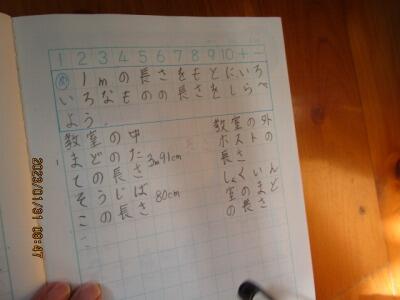 1 2 3 4 5 6 7 8 9 10 + −
め 1mの長さをもとにいろ
いろなものの長さをしらべ
よう
教室の中
まどのた
ての長さ 3m91cm
そうじば
この長さ 80cm
教室の外
ポストの
長さ
しょくいん
室のまど
の長さ
2023/01/31 09:47